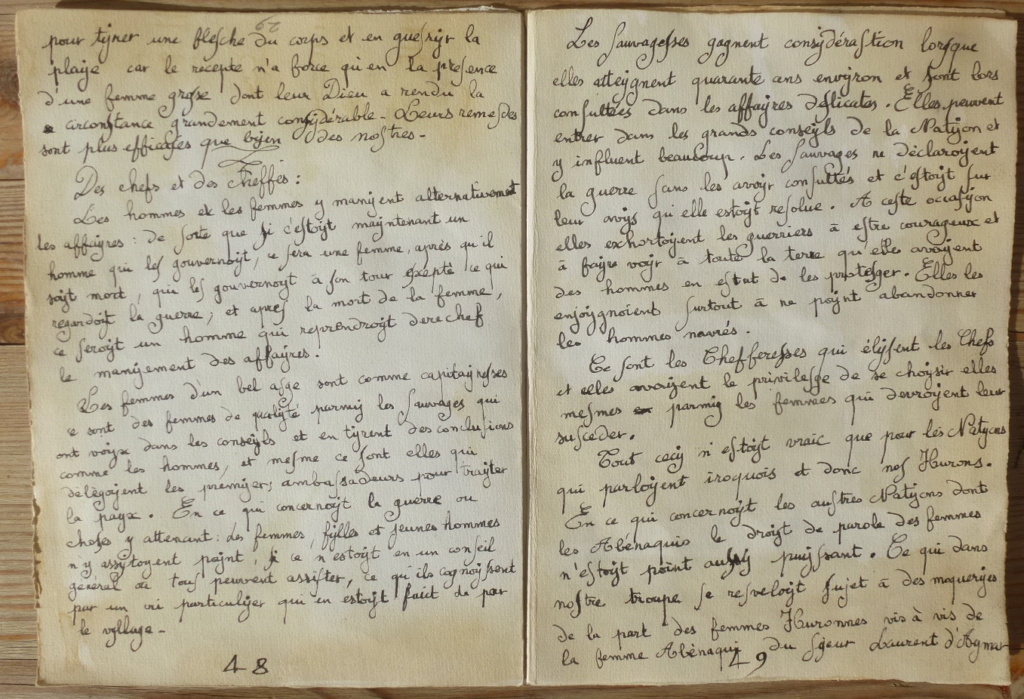 pour tyrer une flesche du corps et en guesryr la
playe car le recepte n'a force qu'en la presence
d'une femme grose dont leur Dieu a rendu la
circonstance grandement consydérable. Leurs remesdes
sont plus efficasses que byen des nostres.
Des chefs et des Cheffes:
Les hommes et les femmes y manyent alternativement
les affayres: de sorte que si c'estoyt maintenant un
homme qui les gouvernoyt, ce sera une femme, après qu'il
soyt mort, qui les gouvernoyt à son tour exepté ce qui
regardoyt la guerre; et apres la mort de la femme,
ce seroyt un homme qui reprendroyt derechef
le manyement des affayres.
Les femmes d'un bel asge sont comme capitayresses
ce sont des femmes de qualyté parmy les sauvages qui
ont voyx dans les conseyls et en tyrent des conclusions
comme les hommes, et mesme ce sont elles qui
delégoyent les premyers ambassadeurs pour trayter
la payx. En ce qui concernoyt la guerre ou
chose y attenant: les femmes, fylles et jeunes hommes
n'y assystoyent poynt, si ce n'estoyt en un conseil
général où tous peuvent assister, ce qu'ils cognoyssent
par un cri particulyer qui en estoyt faict de par
le vyllage.
48
Les sauvagesses gagnent consydérastion lorsque
elles atteygnent quarante ans envyron et sont lors
consultées dans les affayres déslicates. Elles peuvent
entrer dans les grands conseyls de la Natyon et
y influent beaucoup. Les sauvages ne déclaroyent
la guerre sans les avoyr consultés et c'estoyt sur
leur avys qu'elle estoyt resolue. A ceste occasyon
elles exhortoyent les guerriers à estre courageux et
à fayre voyr à toute la terre qu'elle avoyent
des hommes en estat de les protesger. Elles les
enjoygnoient surtout à ne poynt abandonner
les hommes navrés.
Ce sont les Chefferesses qui élysent les Chefs
et elles avoyent le privilesge de se choysir elles
mesmes parmy les femmes qui devroyent leur
susceder.
Tout cecy n'estoyt vraic que pour les Natyons
qui parloyent iroquois et donc nos Hurons.
En ce qui concernoyt les austres Natyons dont
les Abénaquis le droyt de parole des femmes
n'estoyt poînt aussy puyssant. Ce qui dans
nostre troupe se resveloyt sujet à des moqueryes
de la part des femmes Huronnes vis à vis de
la femme Abénaqui du syeur Laurent d'Aymar
49